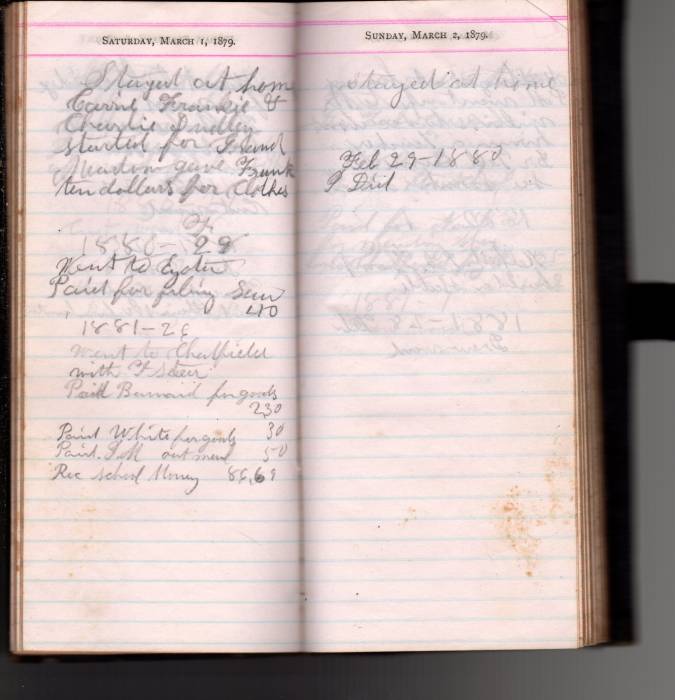 SATURDAY, MARCH 1, 1879.
Stayed at home
Carrie Frankie &
Charlie Dudley
started for Grand
Meadow gave Frank
ten dollars for Clothes
1880 - 29
Went to
Paid for filing Saw
40
1881 -
Went to Chatfield
with
Paid for goods
230
Paid White for goods 30
Paid oat meal 50
Rec school Money
SUNDAY, MARCH 2, 1879.
Stayed at home
Feb 29 - 1880